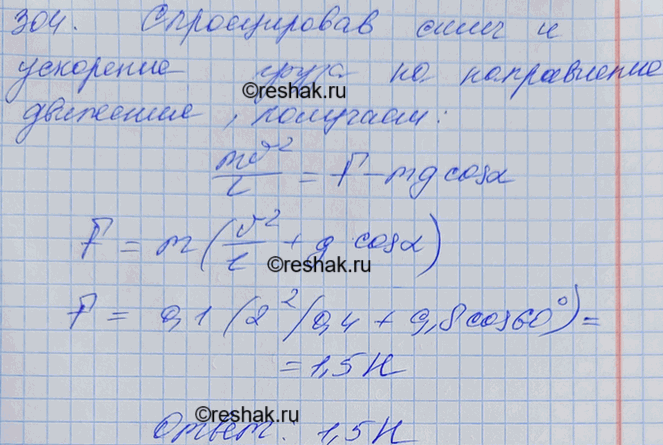 304. Спроецировав силы и
ускорение груза на направление
©reshak.ru
движения, получаем:
mv²/l = F - mg cosα
F = m(v²/l + g cosα)
©reshak.ru
F = 0,1 (2²/0,4 + 9,8 cos60°) =
= 1,5 Н
©reshak.ru
Ответ: 1,5 Н